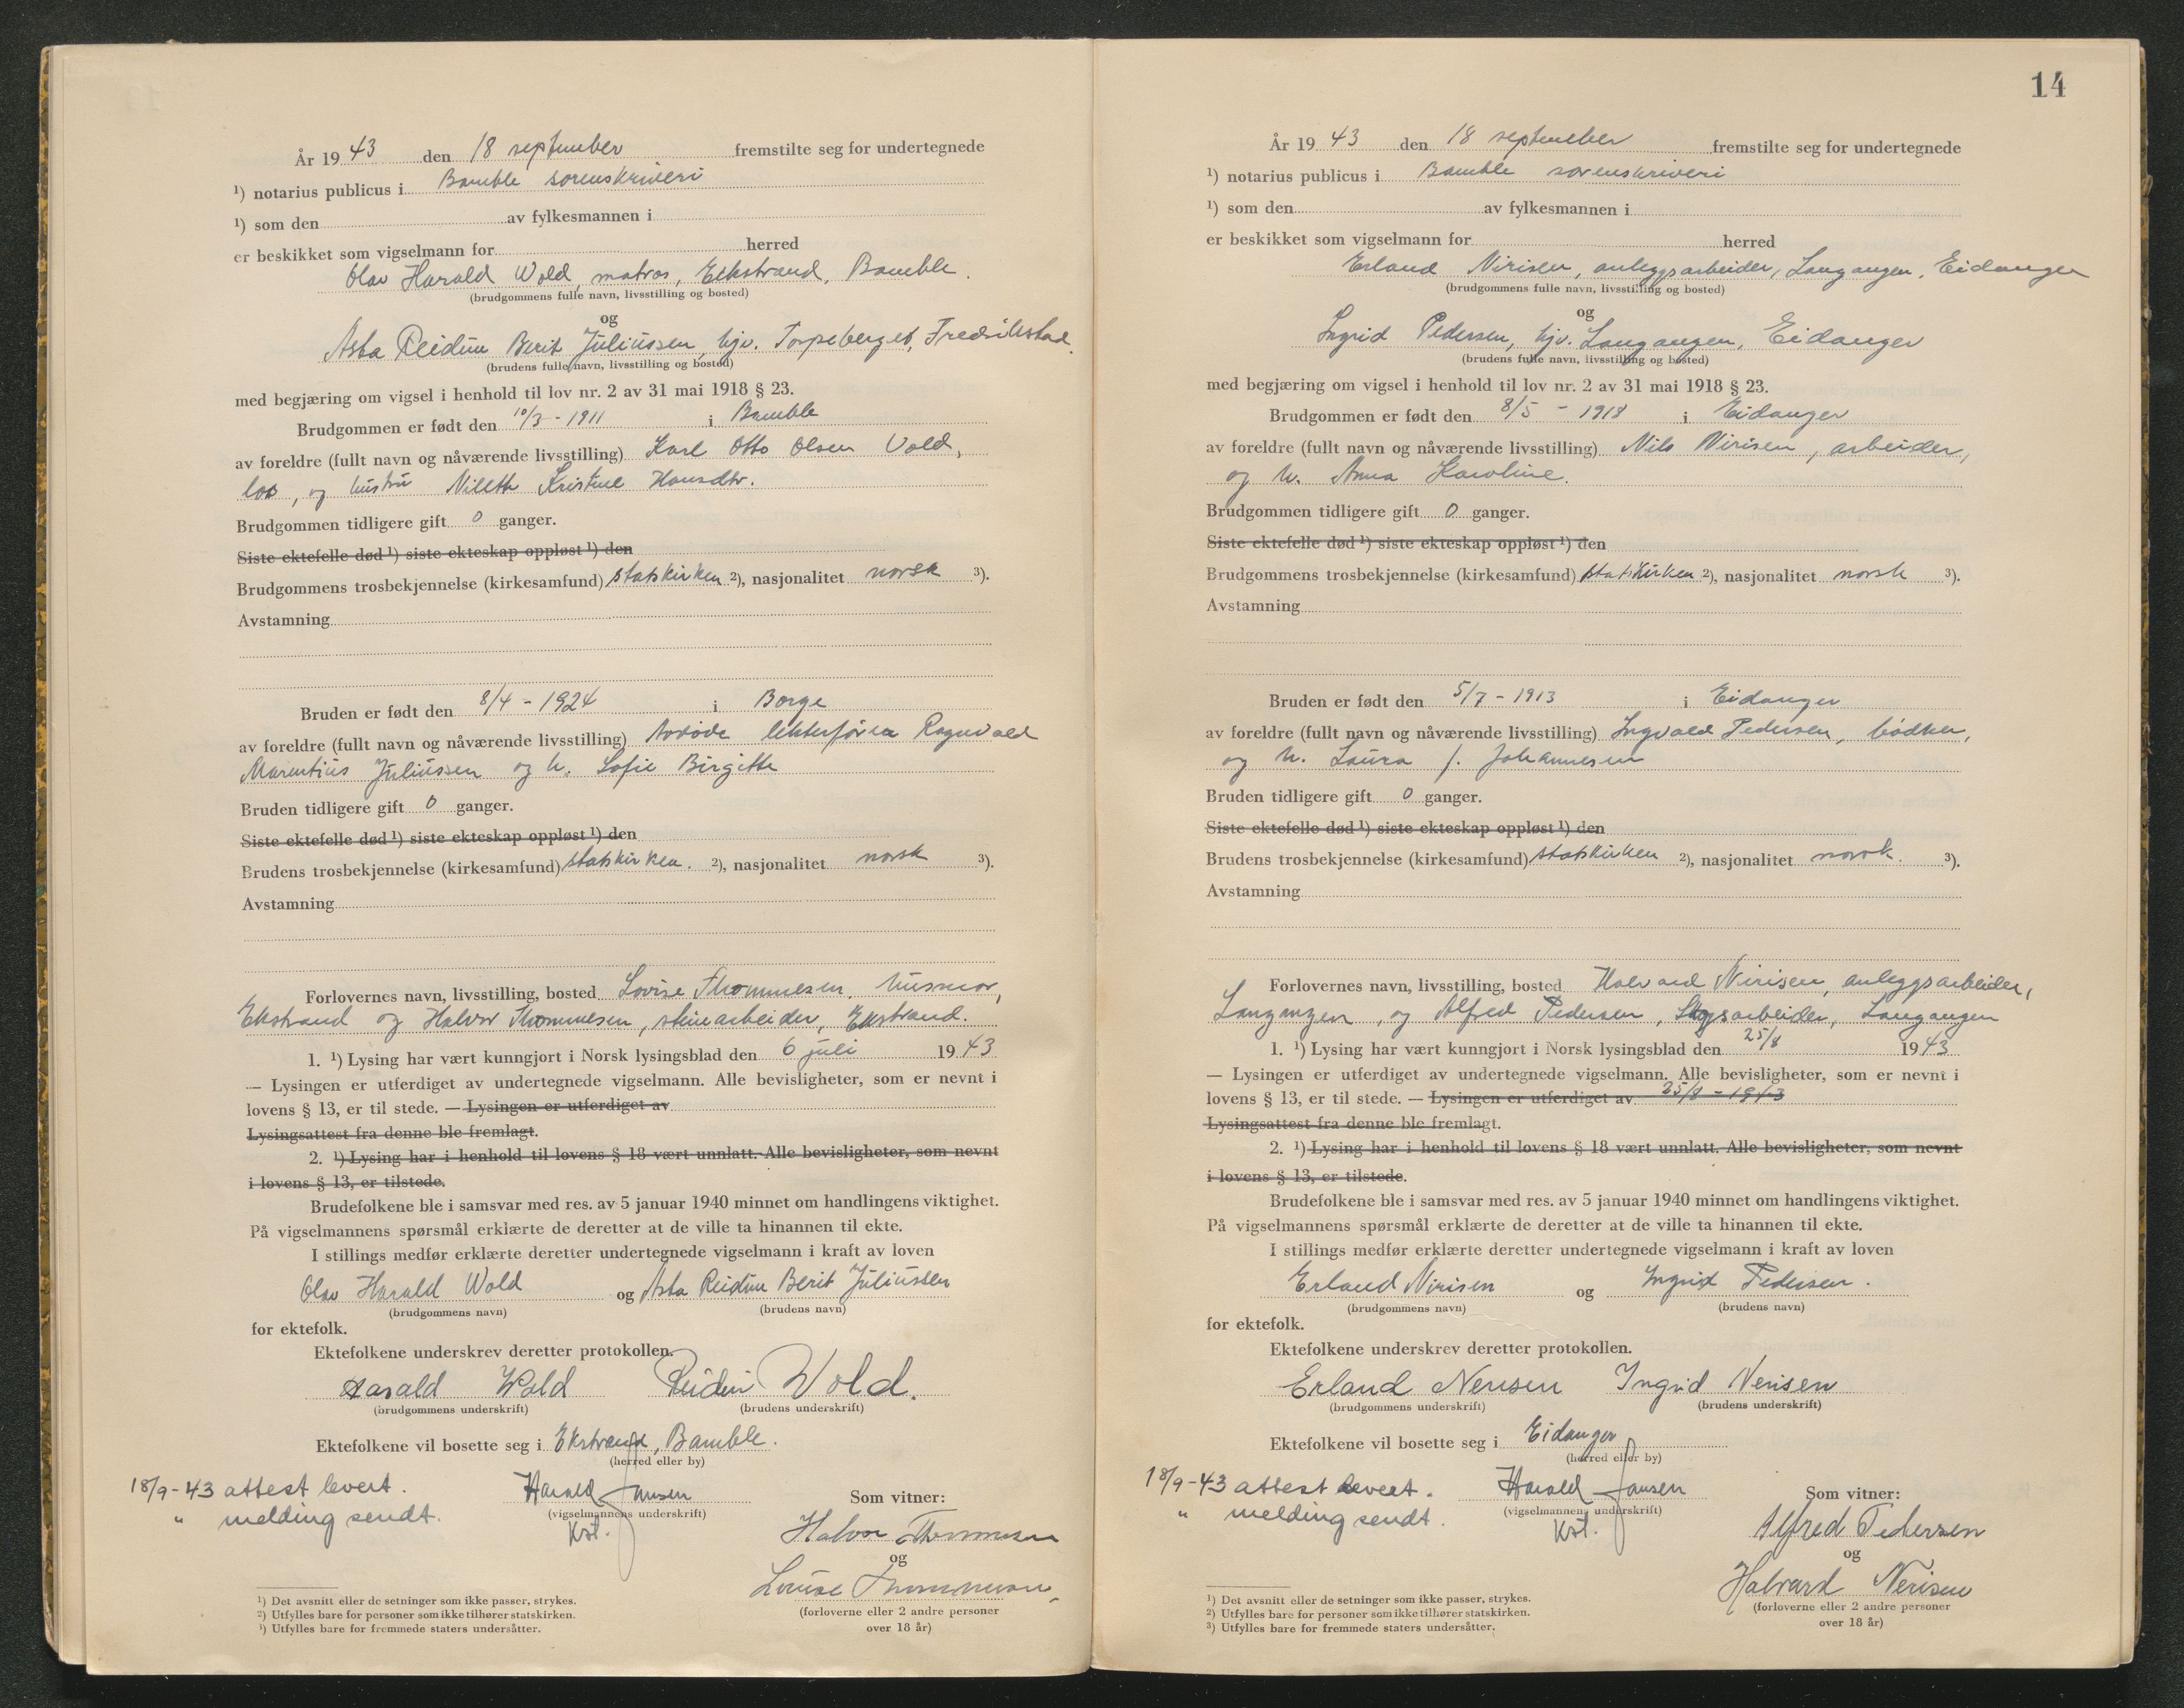 År 19 43 den 18 september fremstilte seg for undertegnede
¹) notarius publicus i Bamble sorenskriveri
¹) som den av fylkesmannen i
er beskikket som vigselmann for herred
Olav Harald Wold, matros, Ekstrand, Bamble.
(brudgommens fulle navn, livsstilling og bosted)
og
Asta Reidun Berit Juliussen, hjv. Torpeberget, Fredrikstad.
(brudens fulle navn, livsstilling og bosted)
med begjæring om vigsel i henhold til lov nr. 2 av 31 mai 1918 § 23.
Brudgommen er født den 10/3 - 1911 i Bamble
av foreldre (fullt navn og nåværende livsstilling) Karl Otto Olsen Vold,
los, og hustru Kristine Hansdtr.
Brudgommen tidligere gift 0 ganger.
Siste ektefelle død ¹) siste ekteskap oppløst ¹) den
Brudgommens trosbekjennelse (kirkesamfund) statskirken ²), nasjonalitet norsk ³).
Avstamning
Bruden er født den 8/4 - 1924 i Borge
av foreldre (fullt navn og nåværende livsstilling) Avdøde lekterfører Ragnvald
Marentius Juliussen og h. Sofie Birgitte
Bruden tidligere gift 0 ganger.
Siste ektefelle død ¹) siste ekteskap oppløst ¹) den
Brudens trosbekjennelse (kirkesamfund) statskirken. ²), nasjonalitet norsk ³).
Avstamning
Forlovernes navn, livsstilling, bosted Lovise Thommesen, husmor,
Ekstrand og Halvor Thommesen, stuearbeider, Ekstrand.
1. ¹) Lysing har vært kunngjort i Norsk lysingsblad den 6 juli 19 43
— Lysingen er utferdiget av undertegnede vigselmann. Alle bevisligheter, som er nevnt i
lovens § 13, er til stede. — Lysingen er utferdiget av
Lysingsattest fra denne ble fremlagt.
2. ¹) Lysing har i henhold til lovens § 18 vært unnlatt. Alle bevisligheter, som nevnt
i lovens § 13, er tilstede.
Brudefolkene ble i samsvar med res. av 5 januar 1940 minnet om handlingens viktighet.
På vigselmannens spørsmål erklærte de deretter at de ville ta hinannen til ekte.
I stillings medfør erklærte deretter undertegnede vigselmann i kraft av loven
Olav Harald Wold og Asta Reidun Berit Juliussen
(brudgommens navn) (brudens navn)
for ektefolk.
Ektefolkene underskrev deretter protokollen.
Harald Wold Reidun Wold.
(brudgommens underskrift) (brudens underskrift)
Ektefolkene vil bosette seg i Ekstrand, Bamble.
(herred eller by)
18/9-43 attest levert.
" melding sendt.
Harald Jansen
(vigselmannens underskrift)
Kst.
Som vitner:
Halvor Thommesen
og
Lovise Thommesen
(forloverne eller 2 andre personer
over 18 år)
¹) Det avsnitt eller de setninger som ikke passer, strykes.
²) Utfylles bare for personer som ikke tilhører statskirken.
³) Utfylles bare for fremmede staters undersåtter.
14
År 19 43 den 18 september fremstilte seg for undertegnede
¹) notarius publicus i Bamble sorenskriveri
¹) som den av fylkesmannen i
er beskikket som vigselmann for herred
Erland Nirisen, anleggsarbeider, Langangen, Eidanger
(brudgommens fulle navn, livsstilling og bosted)
og
Ingrid Pedersen, hjv. Langangen, Eidanger
(brudens fulle navn, livsstilling og bosted)
med begjæring om vigsel i henhold til lov nr. 2 av 31 mai 1918 § 23.
Brudgommen er født den 8/5 - 1918 i Eidanger
av foreldre (fullt navn og nåværende livsstilling) Nils Nirisen, arbeider,
og h. Anna Karoline.
Brudgommen tidligere gift 0 ganger.
Siste ektefelle død ¹) siste ekteskap oppløst ¹) den
Brudgommens trosbekjennelse (kirkesamfund) statskirken ²), nasjonalitet norsk ³).
Avstamning
Bruden er født den 5/7 - 1913 i Eidanger
av foreldre (fullt navn og nåværende livsstilling) Ingvald Pedersen, bødker,
og h. Laura f. Johannesen
Bruden tidligere gift 0 ganger.
Siste ektefelle død ¹) siste ekteskap oppløst ¹) den
Brudens trosbekjennelse (kirkesamfund) statskirken ²), nasjonalitet norsk. ³).
Avstamning
Forlovernes navn, livsstilling, bosted Halvard Nirisen, anleggsarbeider,
Langangen, og Alfred Pedersen, Skogsarbeider, Langangen
1. ¹) Lysing har vært kunngjort i Norsk lysingsblad den 25/8 19 43
— Lysingen er utferdiget av undertegnede vigselmann. Alle bevisligheter, som er nevnt i
lovens § 13, er til stede. — Lysingen er utferdiget av 25/8 - 1943
Lysingsattest fra denne ble fremlagt.
2. ¹) Lysing har i henhold til lovens § 18 vært unnlatt. Alle bevisligheter, som nevnt
i lovens § 13, er tilstede.
Brudefolkene ble i samsvar med res. av 5 januar 1940 minnet om handlingens viktighet.
På vigselmannens spørsmål erklærte de deretter at de ville ta hinannen til ekte.
I stillings medfør erklærte deretter undertegnede vigselmann i kraft av loven
Erland Nirisen og Ingrid Pedersen.
(brudgommens navn) (brudens navn)
for ektefolk.
Ektefolkene underskrev deretter protokollen.
Erland Nerisen Ingrid Nerisen
(brudgommens underskrift) (brudens underskrift)
Ektefolkene vil bosette seg i Eidanger
(herred eller by)
18/9-43 attest levert.
" melding sendt.
Harald Jansen
(vigselmannens underskrift)
Kst.
Som vitner:
Alfred Pedersen
og
Halvard Nerisen
(forloverne eller 2 andre personer
over 18 år)
¹) Det avsnitt eller de setninger som ikke passer, strykes.
²) Utfylles bare for personer som ikke tilhører statskirken.
³) Utfylles bare for fremmede staters undersåtter.